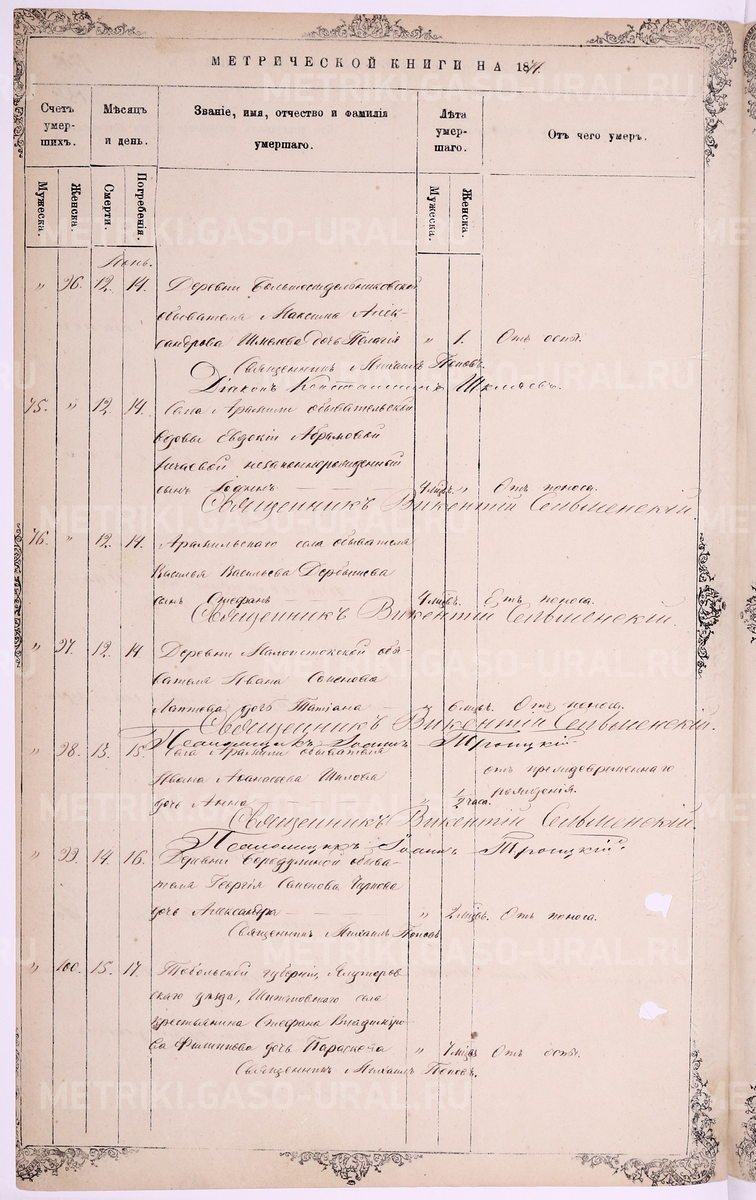 МЕТРИЧЕСКОЙ КНИГИ НА 18
Счетъ умерших.
Мѣсяцъ и день.
Званіе, имя, отчество и фамилія умершаго.
Лѣта умершаго.
Отъ чего умеръ.
Мужеска.
Женска.
Смерти.
Погребенія.
Мужеска.
Женска.
Іюнь.
" 96. 12. 14. Деревни
обывателя Максима Алек-
сандрова Шмелева дочь Пелагія " 1. Отъ оспы.
Священникъ Михаилъ Поповъ.
Діаконъ Константинъ
75. " 12. 14. Села Арамили обывательской
вдовы Евдокіи Абрамовой
незаконнорожденный
сынъ 4 мѣс. " Отъ поноса.
Священникъ Викентій
76. " 12. 14. Арамильскаго села обывателя
Василья Васильева
сынъ Стефанъ 4 мѣс. Отъ поноса.
Священникъ Викентій
" 97. 12. 14. Деревни Малоистокской обы-
вателя Ивана Семенова
Лаптева дочь Татіана 6 мѣс. Отъ поноса.
Священникъ Викентій
Псаломщикъ Іоаннъ Троицкій.
" 98. 13. 15. Села Арамили обывателя
Ивана Аѳанасьева Шилова отъ преждевременнаго
дочь Анна " 1/2 часа. рожденія.
Священникъ Викентій
Псаломщикъ Іоаннъ Троицкій.
" 99. 14. 16. Деревни обыва-
теля Георгія Семенова
дочь Александра " 2 мѣс. Отъ поноса.
Священникъ Михаилъ Поповъ
" 100. 15. 17. Тобольской губерніи, Ялуторов-
скаго уѣзда, села
крестьянина Стефана Владиміро-
ва Филиппова дочь Параскева " 4 мѣс. Отъ оспы.
Священникъ Михаилъ Поповъ.
METRIKI.GASO-URAL.RU